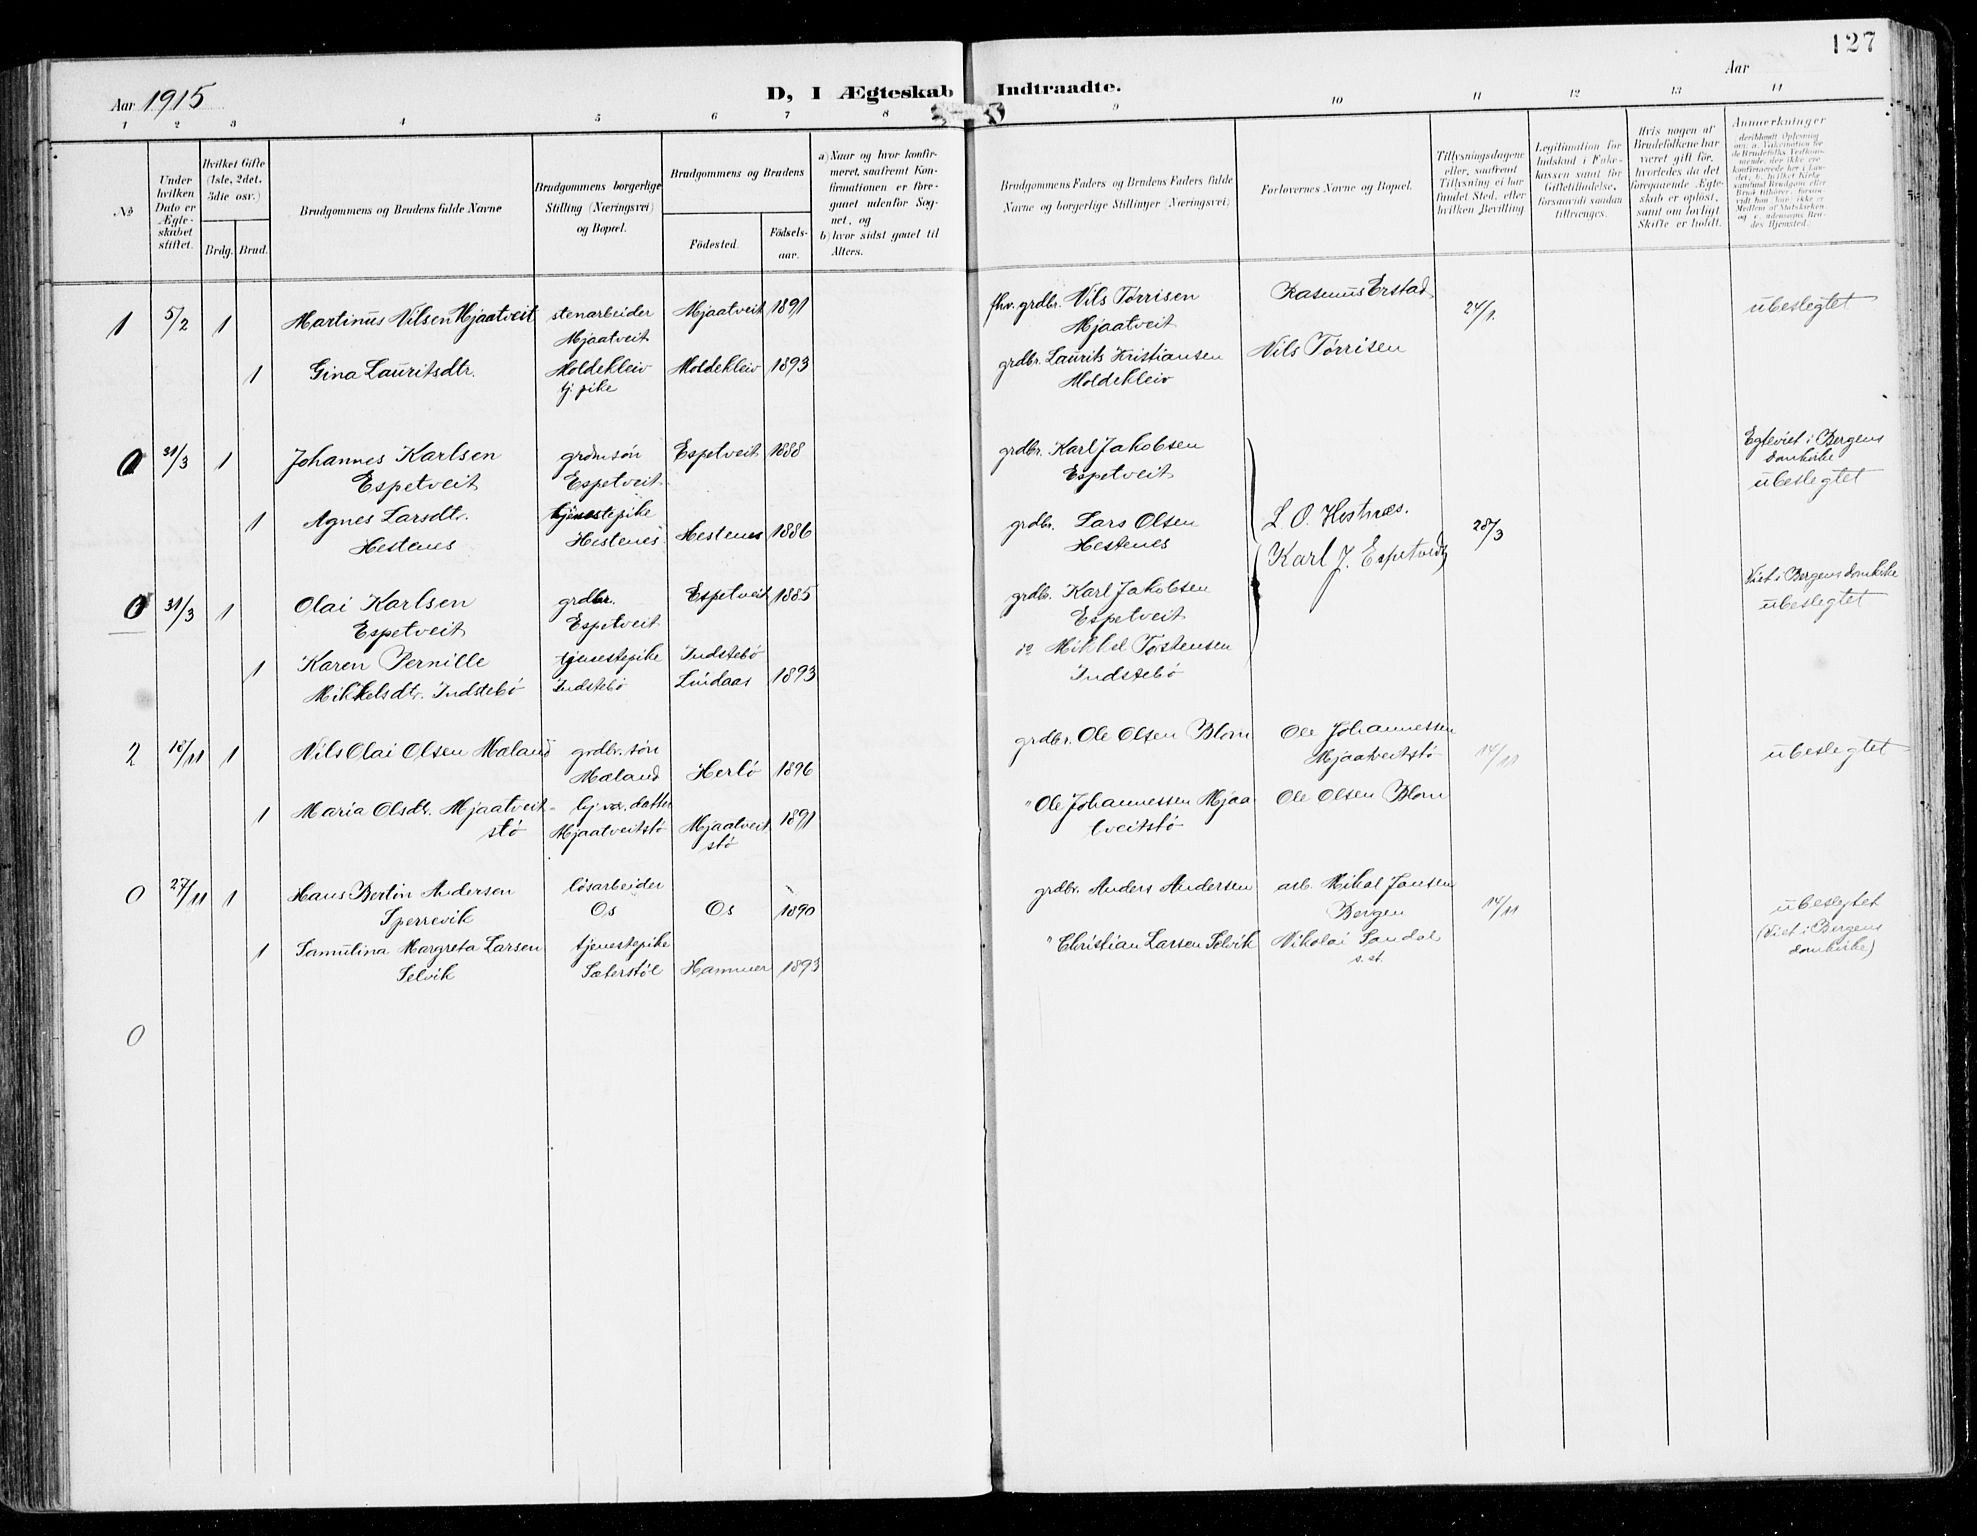 127
Aar 1915
D, I Ægteskab Indtraadte.
Aar
1 2 3 4 5 6 7 8 9 10 11 12 13 14
№
Under hvilken Dato er Ægteskabet stiftet.
Hvilket Gifte (1ste, 2det, 3die osv.)
Brdg. Brud.
Brudgommens og Brudens fulde Navne
Brudgommens borgerlige Stilling (Næringsvei) og Bopæl.
Brudgommens og Brudens
Födested. Födselsaar.
a) Naar og hvor konfirmeret, saafremt Konfirmationen er foregaaet udenfor Sognet, og
b) hvor sidst gaaet til Alters.
Brudgommens Faders og Brudens Faders fulde Navne og borgerlige Stillinger (Næringsvei)
Forlovernes Navne og Bopæl.
Tillysningsdagene eller, saafremt Tillysning ei har fundet Sted, efter hvilken Bevilling
Legitimation for Indskud i Enkekassen samt for Giftetilladelse, forsaavidt saadan tiltrænges.
Hvis nogen af Brudefolkene har været gift för, hvorledes da det foregaaende Ægteskab er oplöst, samt om lovligt Skifte er holdt.
Anmerkninger
1 5/2 1 Martinus Nilsen Mjaatveit stenarbeider Mjaatveit 1891 fhv. grdbr. Nils Torrisen Rasmus Erstad 24/1. ubeslegtet
Mjaatveit Mjaatveit
1 Gina Lauritsdtr. Moldekleiv Moldekleiv 1893 grdbr. Laurits Kristiansen Nils Torrisen
tj. pike Moldekleiv
0 31/3 1 Johannes Karlsen grdmsön Espetveit 1888 grdbr. Karl Jakobsen Egteviet i Bergens
Espetveit Espetveit Espetveit domkirke
ubeslegtet
1 Agnes Larsdtr. tjenestepike Hestenes 1886 grdbr. Lars Olsen L. O. Hestnæs. 28/3
Hestenes Hestenes Hestenes Karl J. Espetvedt
0 31/3 1 Olai Karlsen grdbr. Espetveit 1885 grdb. Karl Jakobsen Viet i Bergens domkirke
Espetveit Espetveit Espetveit ubeslegtet
1 Karen Pernille tjenestepike Indstebö do Mikkel Torstensen
Mikkelsdtr. Indstebö Indstebö Lindaas 1893 Indstebö
2 18/11 1 Nils Olai Olsen Mæland grdbr. sön grdbr. Ole Olsen Blom Ole Johannessen 14/11 ubeslegtet
Mæland Herlö 1896 Mjaatveitstö
1 Maria Olsdtr. Mjaatveit- datter " Ole Johannessen Mjaa Ole Olsen Blom
stö Mjaatveitstö Mjaatveit 1891 tveitstö
stö
0 27/11 1 Hans Bertin Andersen lösarbeider grdbr. Anders Andersen arb. Mikal Jansen 14/11 ubeslegtet
Sperrevik Os Os 1890 Bergen (Viet i Bergens
1 Samulina Margreta Larsen tjenestepike " Christian Larsen Selvik Nikolai Sandal domkirke)
Selvik Sæterstöl Hammer 1893 s. st.
0